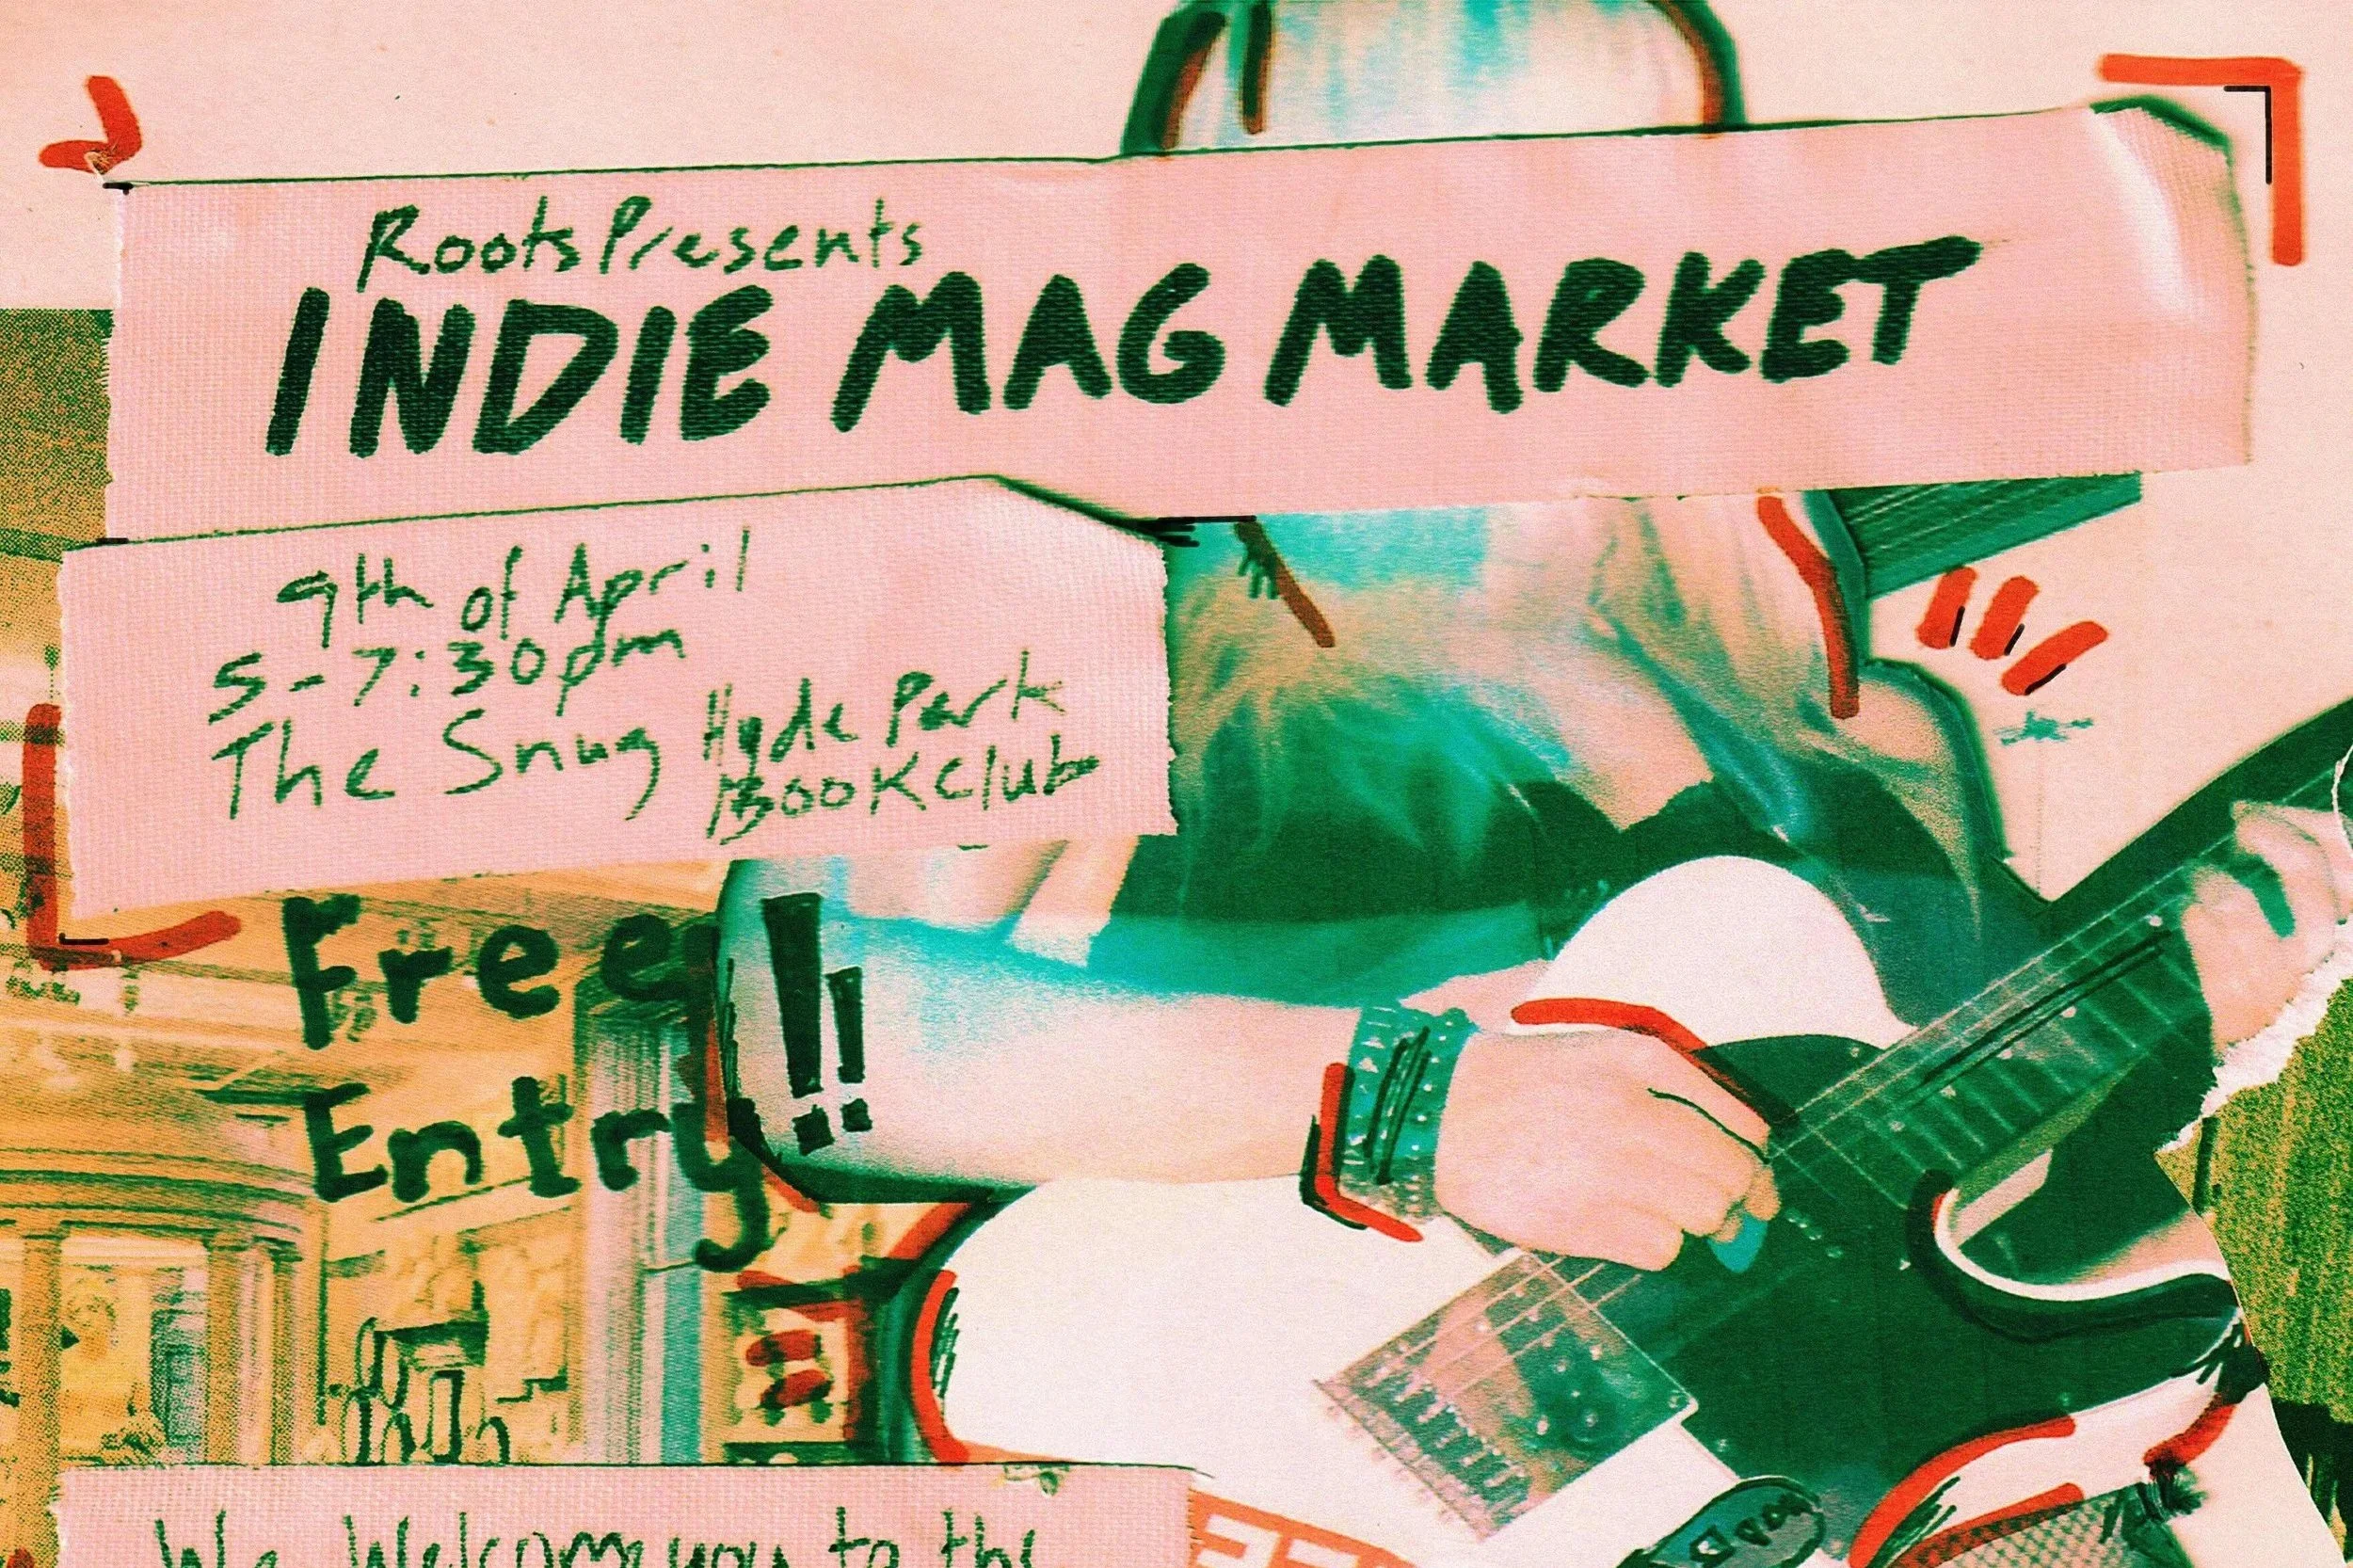 Roots Presents
INDIE MAG MARKET
9th of April
5-7:30pm
The Snug Hyde Park
Book Club
Free
Entry!!
We Welcome you to the